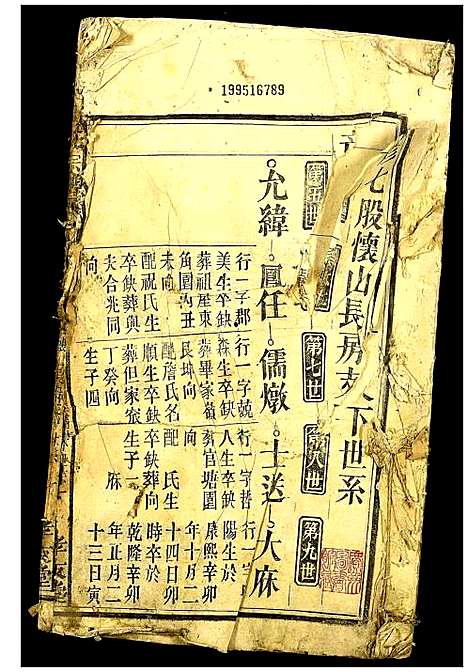 199516789
七股懷山長房支下世系
第五世
第七世
第八世
第九世
允緯
鳳任
儒燉
士送
大麻
行一字郡
美生卒缺
葬祖屋東
角園內丑
未向
配祝氏生
卒缺葬與
夫合兆同
向
行一字競
森生卒缺
葬畢家嶺
艮坤向
配詹氏名
順生卒缺
葬但家
丁癸向
生子四
行一字哲
人生卒缺
葬官塘園
向
配 氏生
卒缺葬向
生子一
麻
行一字
陽生於
康熙辛卯
年十月二
十四日卯
時卒於
乾隆辛卯
年五月二
十三日寅